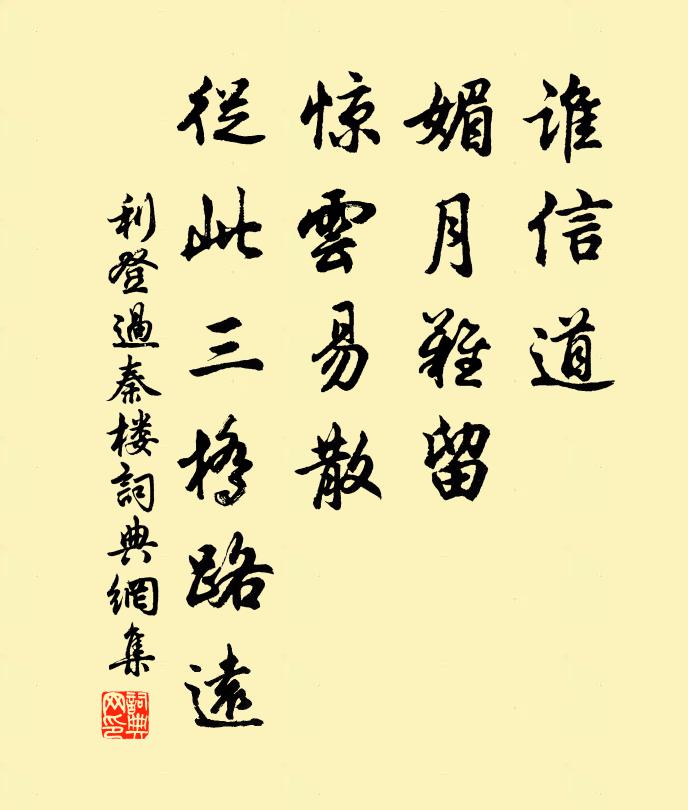 谁信道
媚月難留
惊雲易散
從此三橋路遠
利登過秦楼詞典網集
詞典网印